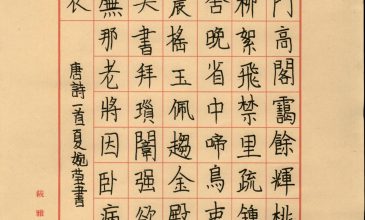 門高閣靄餘輝桃
柳絮飛禁里疏鍾
舍晚省中啼鳥吏
晨搖玉佩趨金殿
天書拜瑣闈强欲
無那老將因卧病
衣
唐詩一首夏婉書